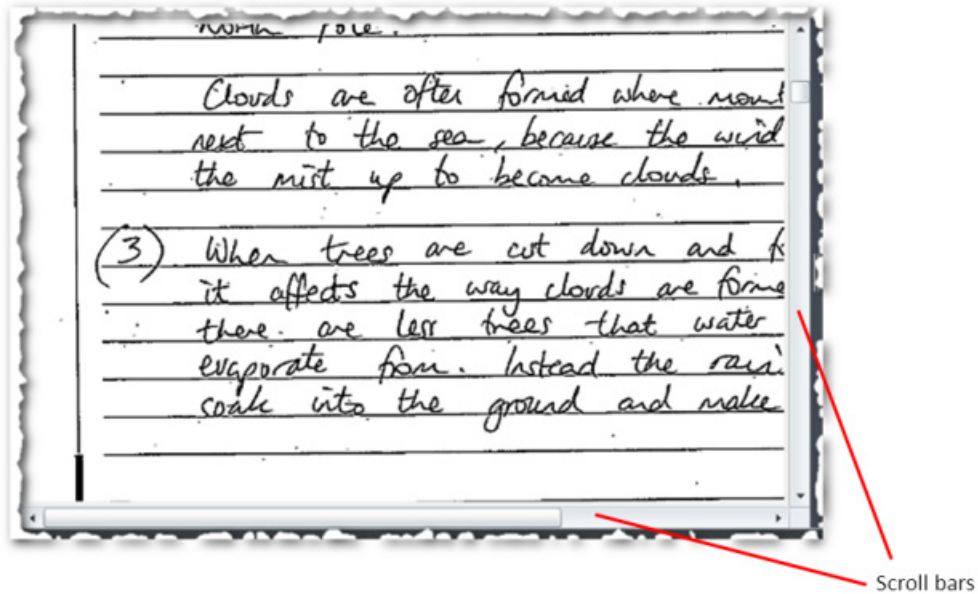 Clouds are often formed where mount
next to the sea, because the wind
the mist up to become clouds.
(3) When trees are cut down and
it affects the way clouds are forme
there. are less trees that water
evaporate from. Instead the rain
soak into the ground and make
Scroll bars